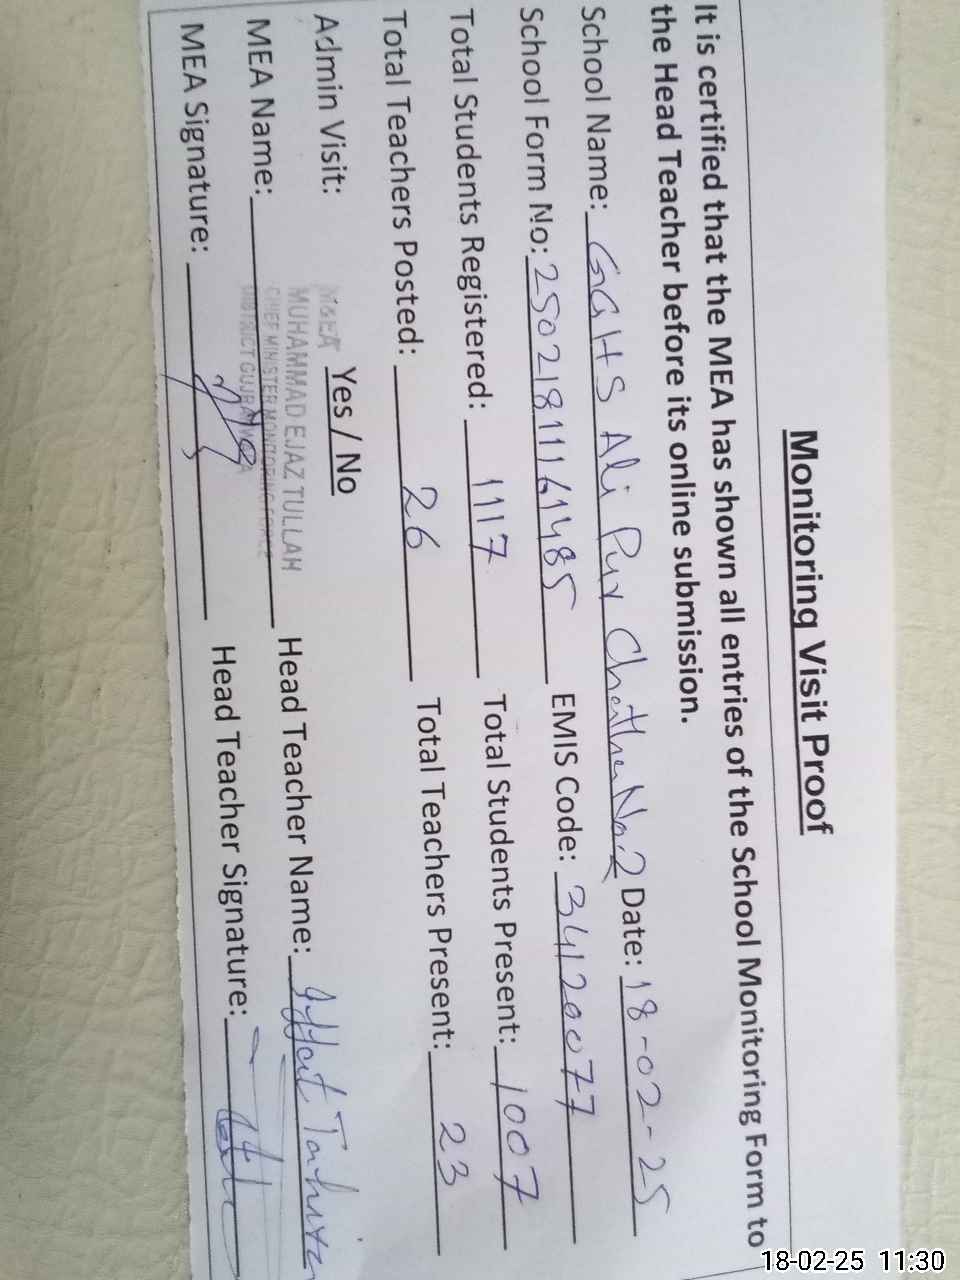 Monitoring Visit Proof
It is certified that the MEA has shown all entries of the School Monitoring Form to
the Head Teacher before its online submission.
School Name: GGHS Ali Pur Chatha No.2 Date: 18-02-25
School Form No: 25021811161485 EMIS Code: 34120077
Total Students Registered: 1117 Total Students Present: 1007
Total Teachers Posted: 26 Total Teachers Present: 23
Admin Visit: Yes / No
M&EA
MUHAMMAD EJAZ TULLAH
CHIEF MINISTER MONITORING FORCE
DISTRICT GUJRANWALA
MEA Name: Head Teacher Name: Iffat
MEA Signature: Head Teacher Signature:
18-02-25 11:30